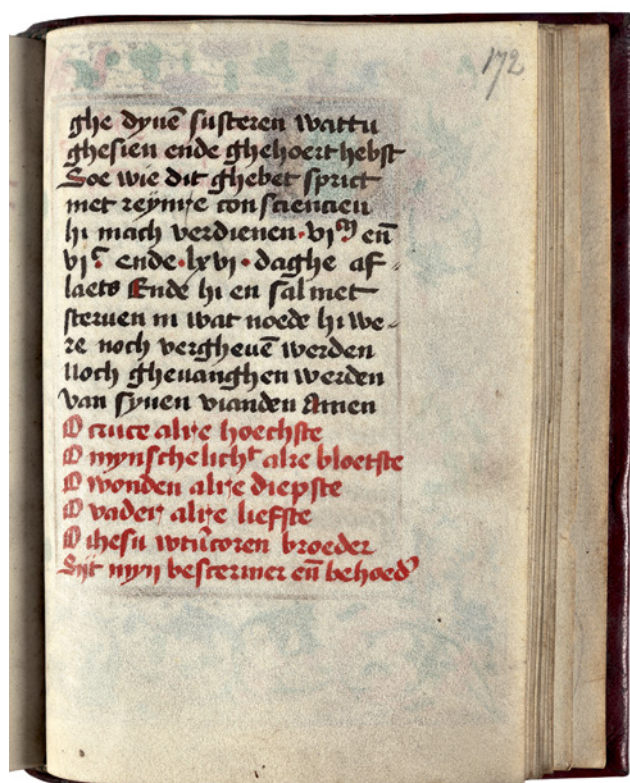 172
ghe dynē susteren wattu
ghesien ende ghehoert hebst
Soe wie dit ghebet sprict
met reynre consciencien
hi mach verdienen·vjᵐ en̄
vjᶜ ende·lxvj·daghe af-
laets Ende hi en sal met
steruen in wat noede hi we-
re noch vergheuē werden
Noch gheuanghen werden
van synen vianden Amen
O cruce alre hoechste
O mynschelicht alre bloetste
O wonden alre diepste
O vader alre liefste
O ihesu broeder
Sijt myn bescermer en̄ behoed'